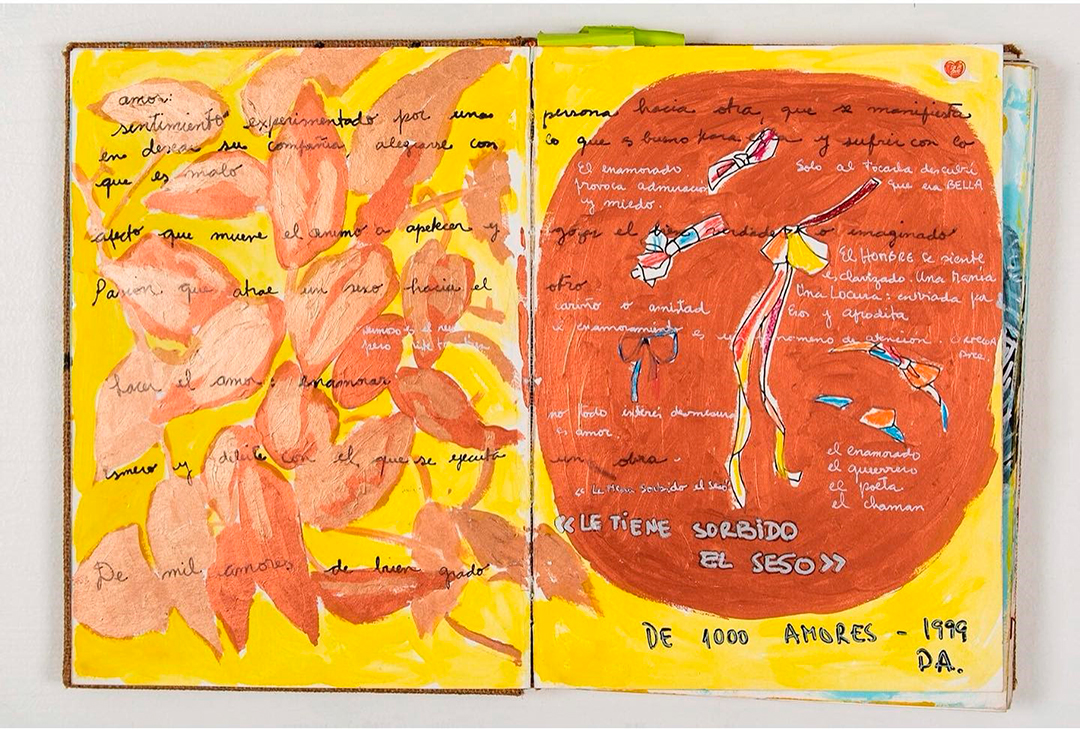 amor:
sentimiento experimentado por una persona hacia otra, que se manifiesta
en desear su compañia, alegrarse con lo que es bueno para y sufrir con lo
que es malo
afecto que mueve el animo a apetecer y gozar el bien verdadero o imaginado
Pasion que atrae un sexo hacia el otro
cariño o amistad
hacer el amor: enamorar
esmero y deleite con el que se ejecuta una obra.
De mil amores de buen grado
El enamorado
provoca admiracion
y miedo.
Solo al tocarla descubri
que era BELLA
El HOMBRE se siente
esclavizado. Una Mania
Una Locura: enviada por
Eros y Afrodita
enamoramiento es fenomeno de atención.
no todo
es amor
el enamorado
el guerrero
el poeta
el chaman
sorbido el seso
«LE TIENE SORBIDO
EL SESO»
DE 1000 AMORES - 1999
D.A.